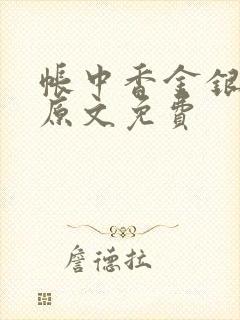 帳中香金銀
原文免費
詹德拉